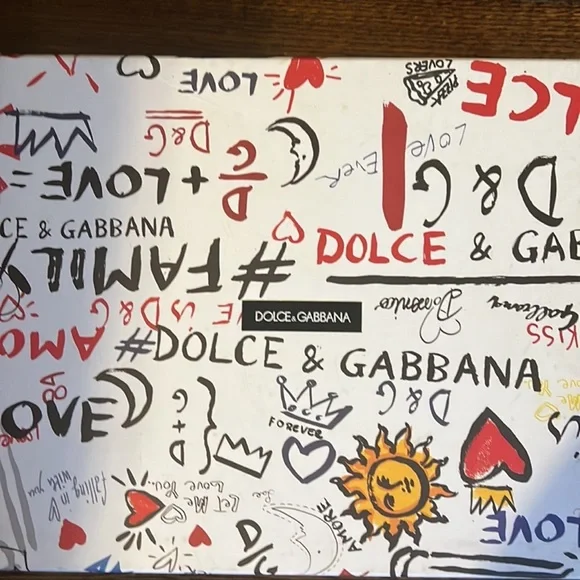 LOVE
PIZZA LOVERS
LCE
D&G
D
G
LOVE EVER
= LOVE +
D & G
CE & GABBANA
#FAMILY
DOLCE & GAB
DOLCE&GABBANA
Domenico
KISS
AMO
#DOLCE & GABBANA
D & G
LOVE
G + D
FOREVER
falling in
with you
Let Me
Love You...
AMORE
LOVE